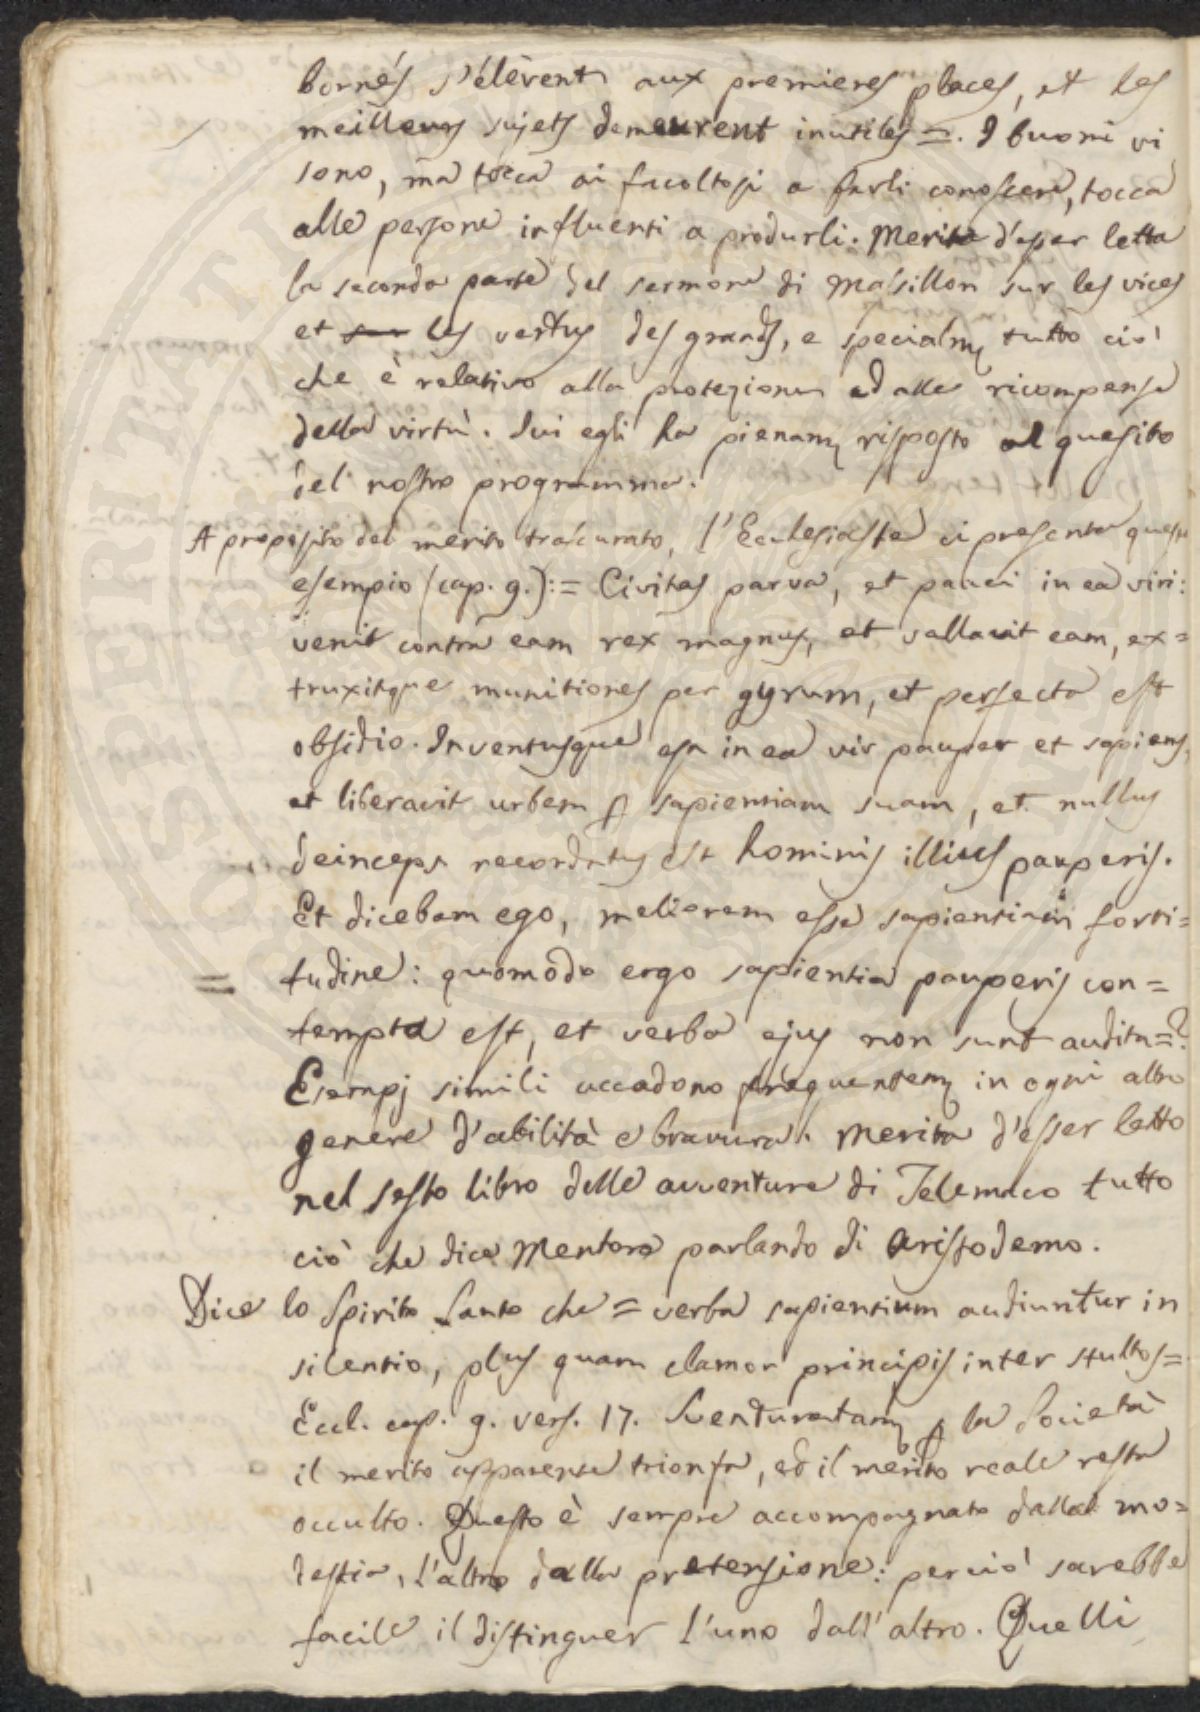 bornés s'élèvent aux premieres places, et les
meilleurs sujets demeurent inutiles =. I buoni vi
sono, ma tocca ai facoltosi a farli conoscere, tocca
alle persone influenti a produrli. Merita d'esser letta
la seconda parte del sermone di Massillon sur les vices
et les vertus des grands, e specialm. tutto ciò
che è relativo alla protezione ed alle ricompense
della virtù. Ivi egli ha pienam. risposto al quesito
del nostro programma.
A proposito del merito trascurato, l'Ecclesiaste ci presenta questo
esempio (cap. 9.): = Civitas parva, et pauci in ea viri:
venit contra eam rex magnus, et vallavit eam, ex=
truxitque munitiones per gyrum, et perfecta est
obsidio. Inventusque est in ea vir pauper et sapiens,
et liberavit urbem p sapientiam suam, et nullus
deinceps recordatus est hominis illius pauperis.
Et dicebam ego, meliorem esse sapientiam forti=
= tudine: quomodo ergo sapientia pauperis con=
tempta est, et verba ejus non sunt audita=?
Esempj simili accadono frequentem. in ogni altro
genere d'abilità e bravura. Merita d'esser letto
nel sesto libro delle avventure di Telemaco tutto
ciò che dice Mentore parlando di Aristodemo.
Dice lo Spirito Santo che = verba sapientium audiuntur in
silentio, plus quam clamor principis inter stultos=
Eccl. cap. 9. vers. 17. Sventuratam. p la Società
il merito apparente trionfa, ed il merito reale resta
occulto. Questo è sempre accompagnato dalla mo=
destia, l'altro dalla pretensione: perciò sarebbe
facile il distinguer l'uno dall'altro. Quelli
SPERITATI